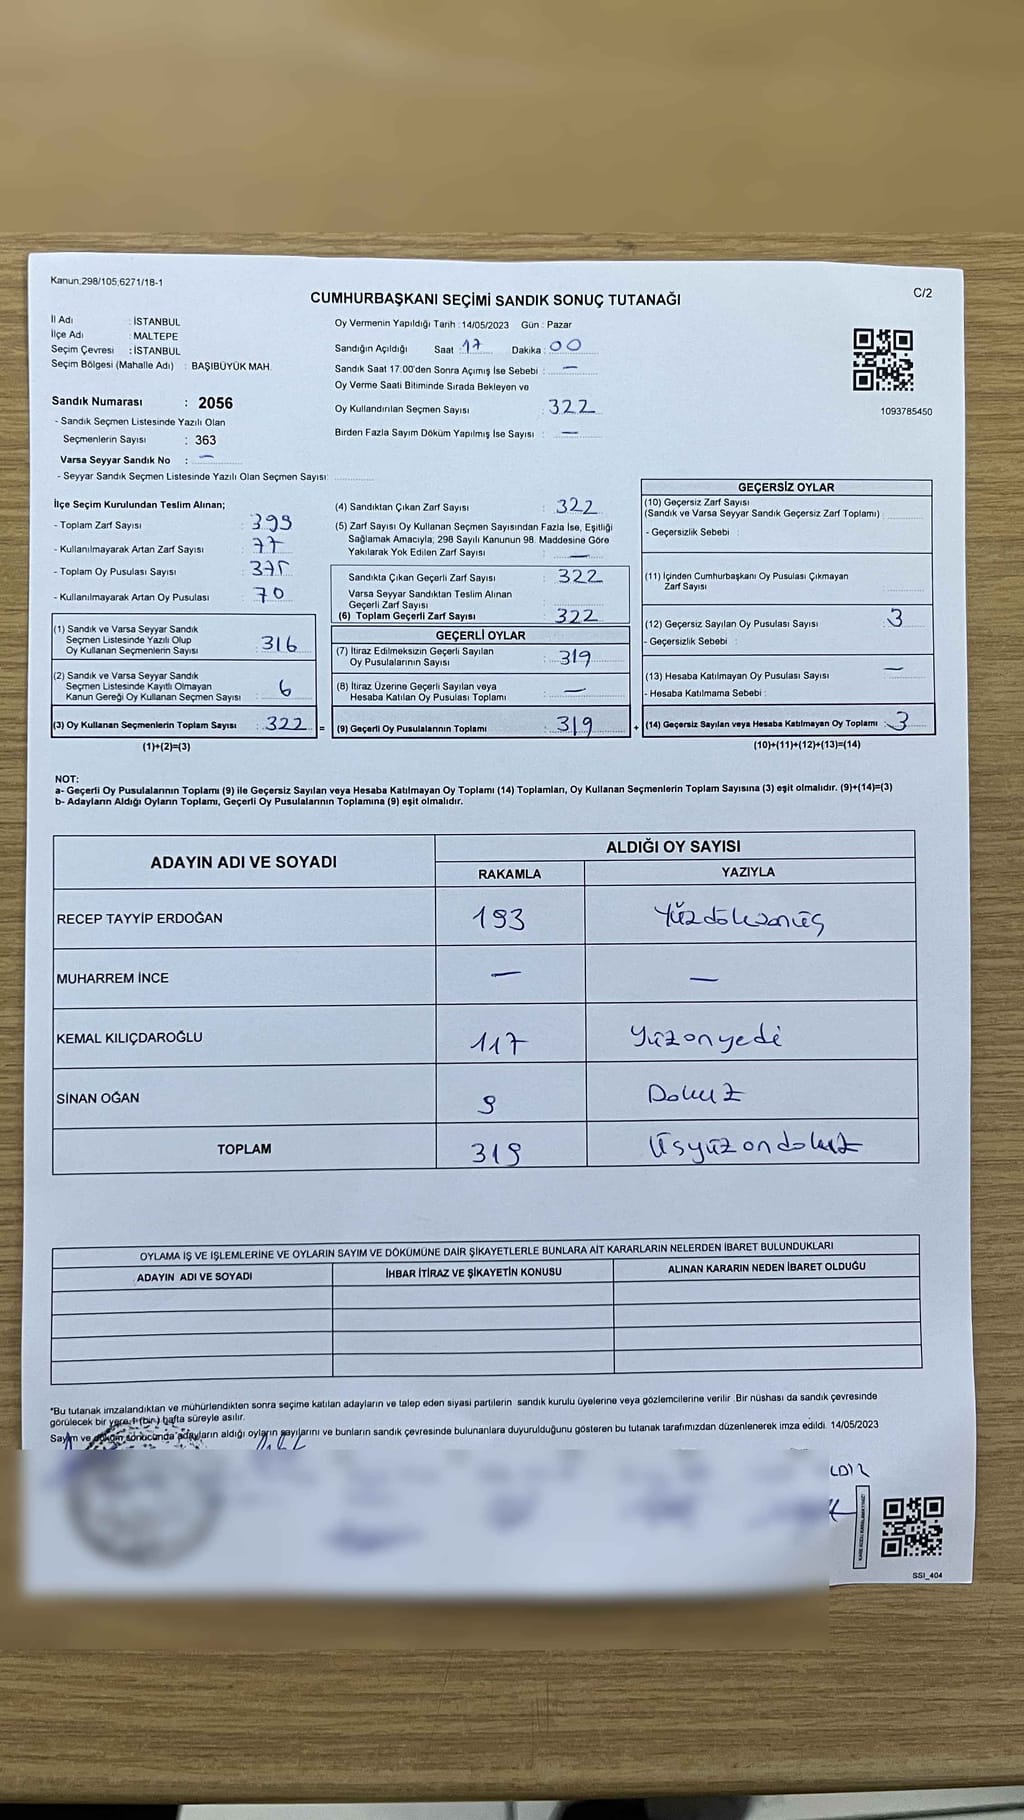 Kanun,298/105,6271/18-1
C/2
CUMHURBAŞKANI SEÇİMİ SANDIK SONUÇ TUTANAĞI
İl Adı : İSTANBUL
İlçe Adı : MALTEPE
Seçim Çevresi : İSTANBUL
Seçim Bölgesi (Mahalle Adı) : BAŞIBÜYÜK MAH.
Sandık Numarası : 2056
- Sandık Seçmen Listesinde Yazılı Olan
Seçmenlerin Sayısı : 363
Varsa Seyyar Sandık No : —
- Seyyar Sandık Seçmen Listesinde Yazılı Olan Seçmen Sayısı:
Oy Vermenin Yapıldığı Tarih : 14/05/2023 Gün : Pazar
Sandığın Açıldığı Saat : 17 Dakika : 00
Sandık Saat 17.00'den Sonra Açımış İse Sebebi : —
Oy Verme Saati Bitiminde Sırada Bekleyen ve
Oy Kullandırılan Seçmen Sayısı : 322
Birden Fazla Sayım Döküm Yapılmış İse Sayısı : —
1093785450
İlçe Seçim Kurulundan Teslim Alınan;
- Toplam Zarf Sayısı : 399
- Kullanılmayarak Artan Zarf Sayısı : 77
- Toplam Oy Pusulası Sayısı : 375
- Kullanılmayarak Artan Oy Pusulası : 70
(1) Sandık ve Varsa Seyyar Sandık
Seçmen Listesinde Yazılı Olup
Oy Kullanan Seçmenlerin Sayısı : 316
(2) Sandık ve Varsa Seyyar Sandık
Seçmen Listesinde Kayıtlı Olmayan
Kanun Gereği Oy Kullanan Seçmen Sayısı : 6
(3) Oy Kullanan Seçmenlerin Toplam Sayısı : 322 =
(1)+(2)=(3)
(4) Sandıktan Çıkan Zarf Sayısı : 322
(5) Zarf Sayısı Oy Kullanan Seçmen Sayısından Fazla İse, Eşitliği
Sağlamak Amacıyla, 298 Sayılı Kanunun 98. Maddesine Göre
Yakılarak Yok Edilen Zarf Sayısı : —
Sandıkta Çıkan Geçerli Zarf Sayısı : 322
Varsa Seyyar Sandıktan Teslim Alınan
Geçerli Zarf Sayısı :
(6) Toplam Geçerli Zarf Sayısı : 322
GEÇERLİ OYLAR
(7) İtiraz Edilmeksizin Geçerli Sayılan
Oy Pusulalarının Sayısı : 319
(8) İtiraz Üzerine Geçerli Sayılan veya
Hesaba Katılan Oy Pusulası Toplamı : —
(9) Geçerli Oy Pusulalarının Toplamı : 319 +
GEÇERSİZ OYLAR
(10) Geçersiz Zarf Sayısı
(Sandık ve Varsa Seyyar Sandık Geçersiz Zarf Toplamı) :
- Geçersizlik Sebebi :
(11) İçinden Cumhurbaşkanı Oy Pusulası Çıkmayan
Zarf Sayısı :
(12) Geçersiz Sayılan Oy Pusulası Sayısı : 3
- Geçersizlik Sebebi :
(13) Hesaba Katılmayan Oy Pusulası Sayısı : —
- Hesaba Katılmama Sebebi :
(14) Geçersiz Sayılan veya Hesaba Katılmayan Oy Toplamı : 3
(10)+(11)+(12)+(13)=(14)
NOT:
a- Geçerli Oy Pusulalarının Toplamı (9) ile Geçersiz Sayılan veya Hesaba Katılmayan Oy Toplamı (14) Toplamları, Oy Kullanan Seçmenlerin Toplam Sayısına (3) eşit olmalıdır. (9)+(14)=(3)
b- Adayların Aldığı Oyların Toplamı, Geçerli Oy Pusulalarının Toplamına (9) eşit olmalıdır.
ADAYIN ADI VE SOYADI
ALDIĞI OY SAYISI
RAKAMLA YAZIYLA
RECEP TAYYİP ERDOĞAN 193 Yüzdoksanüç
MUHARREM İNCE — —
KEMAL KILIÇDAROĞLU 117 Yüzonyedi
SİNAN OĞAN 9 Dokuz
TOPLAM 319 Üçyüzondokuz
OYLAMA İŞ VE İŞLEMLERİNE VE OYLARIN SAYIM VE DÖKÜMÜNE DAİR ŞİKAYETLERLE BUNLARA AİT KARARLARIN NELERDEN İBARET BULUNDUKLARI
ADAYIN ADI VE SOYADI İHBAR İTİRAZ VE ŞİKAYETİN KONUSU ALINAN KARARIN NEDEN İBARET OLDUĞU
*Bu tutanak imzalandıktan ve mühürlendikten sonra seçime katılan adayların ve talep eden siyasi partilerin sandık kurulu üyelerine veya gözlemcilerine verilir. Bir nüshası da sandık çevresinde
görülecek bir yere 1 (bir) hafta süreyle asılır.
Sayım ve döküm sonucunda adayların aldığı oyların sayılarını ve bunların sandık çevresinde bulunanlara duyurulduğunu gösteren bu tutanak tarafımızdan düzenlenerek imza edildi. 14/05/2023
SSI_404